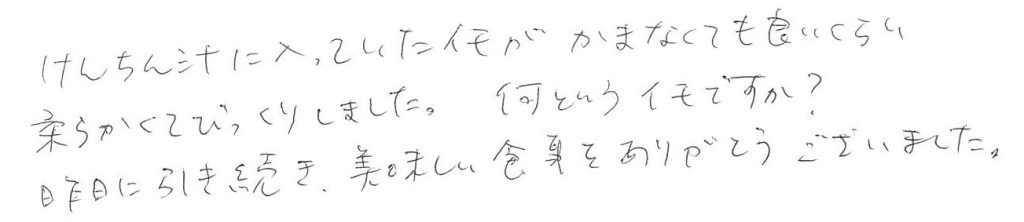 けんちん汁に入っていたイモが かまなくても良いくらい
柔らかくてびっくりしました。 何というイモですか?
昨日に引き続き、美味しい食事をありがとうございました。